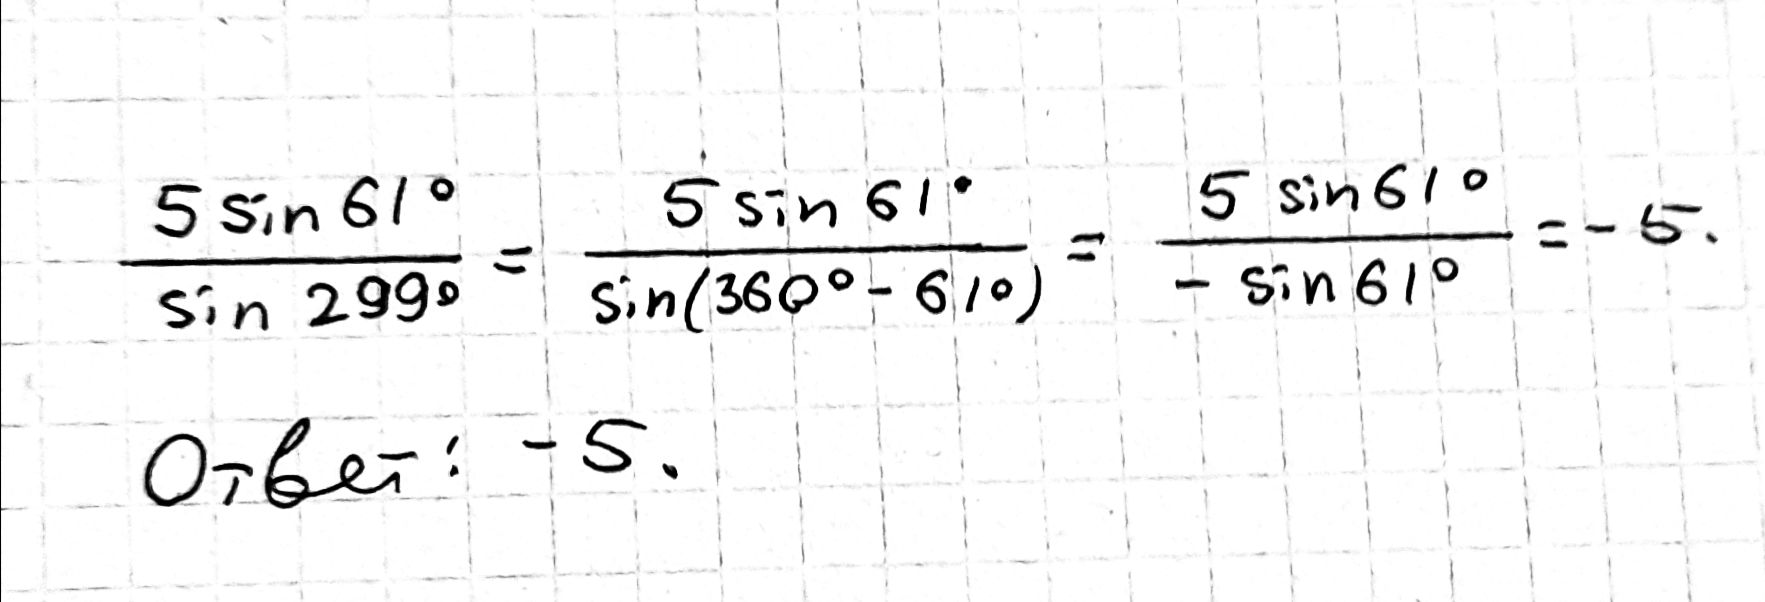 5 sin 61° / sin 299° = 5 sin 61° / sin(360° - 61°) = 5 sin 61° / - sin 61° = - 5.
Ответ: - 5.